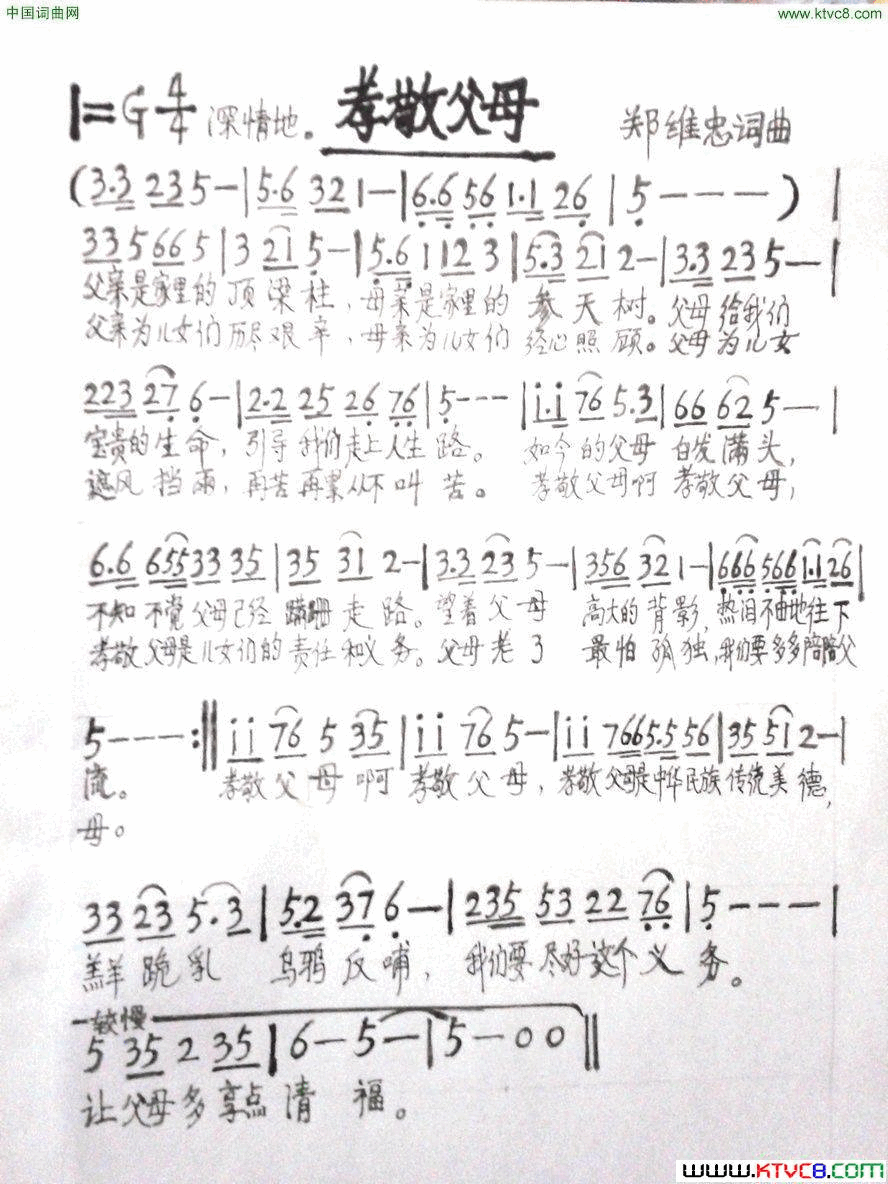 中国词曲网 www.ktvc8.com
1=G 4/4 深情地。 孝敬父母 郑维忠词曲
(3.3 23 5-|5.6 321-|6.6 56 1.1 26|5---)|
33 5 66 5|3 21 5-|5.6 1 12 3|5.3 21 2-|3.3 23 5-|
父亲是家里的顶梁柱,母亲是家里的参天树。父母给我们
父亲为儿女们历尽艰辛,母亲为儿女们经心照顾。父母为儿女
223 27 6-|2.2 25 26 76|5---|i.i 76 5.3|66 62 5-|
宝贵的生命,引导我们走上人生路。如今的父母白发满头,
遮风挡雨,再苦再累从不叫苦。孝敬父母啊孝敬父母,
6.6 655 33 35|35 31 2-|3.3 23 5-|356 32 1-|666 566 1.1 26|
不知不觉父母已经蹒跚走路。望着父母高大的背影,热泪不由地往下
孝敬父母是儿女们的责任和义务。父母老了最怕孤独,我们要多多陪陪父
5---:‖ii 76 5 35|ii 76 5-|ii 766 5.5 56|35 51 2-|
流。孝敬父母啊孝敬父母,孝敬父母是中华民族传统美德,
母。
33 23 5.3|5.2 37 6-|235 53 22 76|5---|
羔羊跪乳乌鸦反哺,我们要尽好这个义务。
较慢
5 35 2 35|6-5-|5-00‖
让父母多享点清福。
www.KTVC8.com